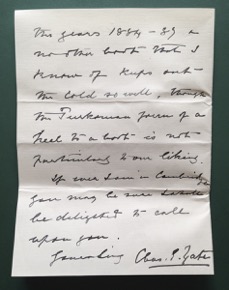 the years 1884-89 a
no other boot that I
know of keeps out
the cold so well, though
the Turkoman form of a
heel to a boot is not
particularly to our liking.
If ever I am in Cambridge
you may be sure I
be delighted to call
upon you.
Yours truly
Chas. E. Yate